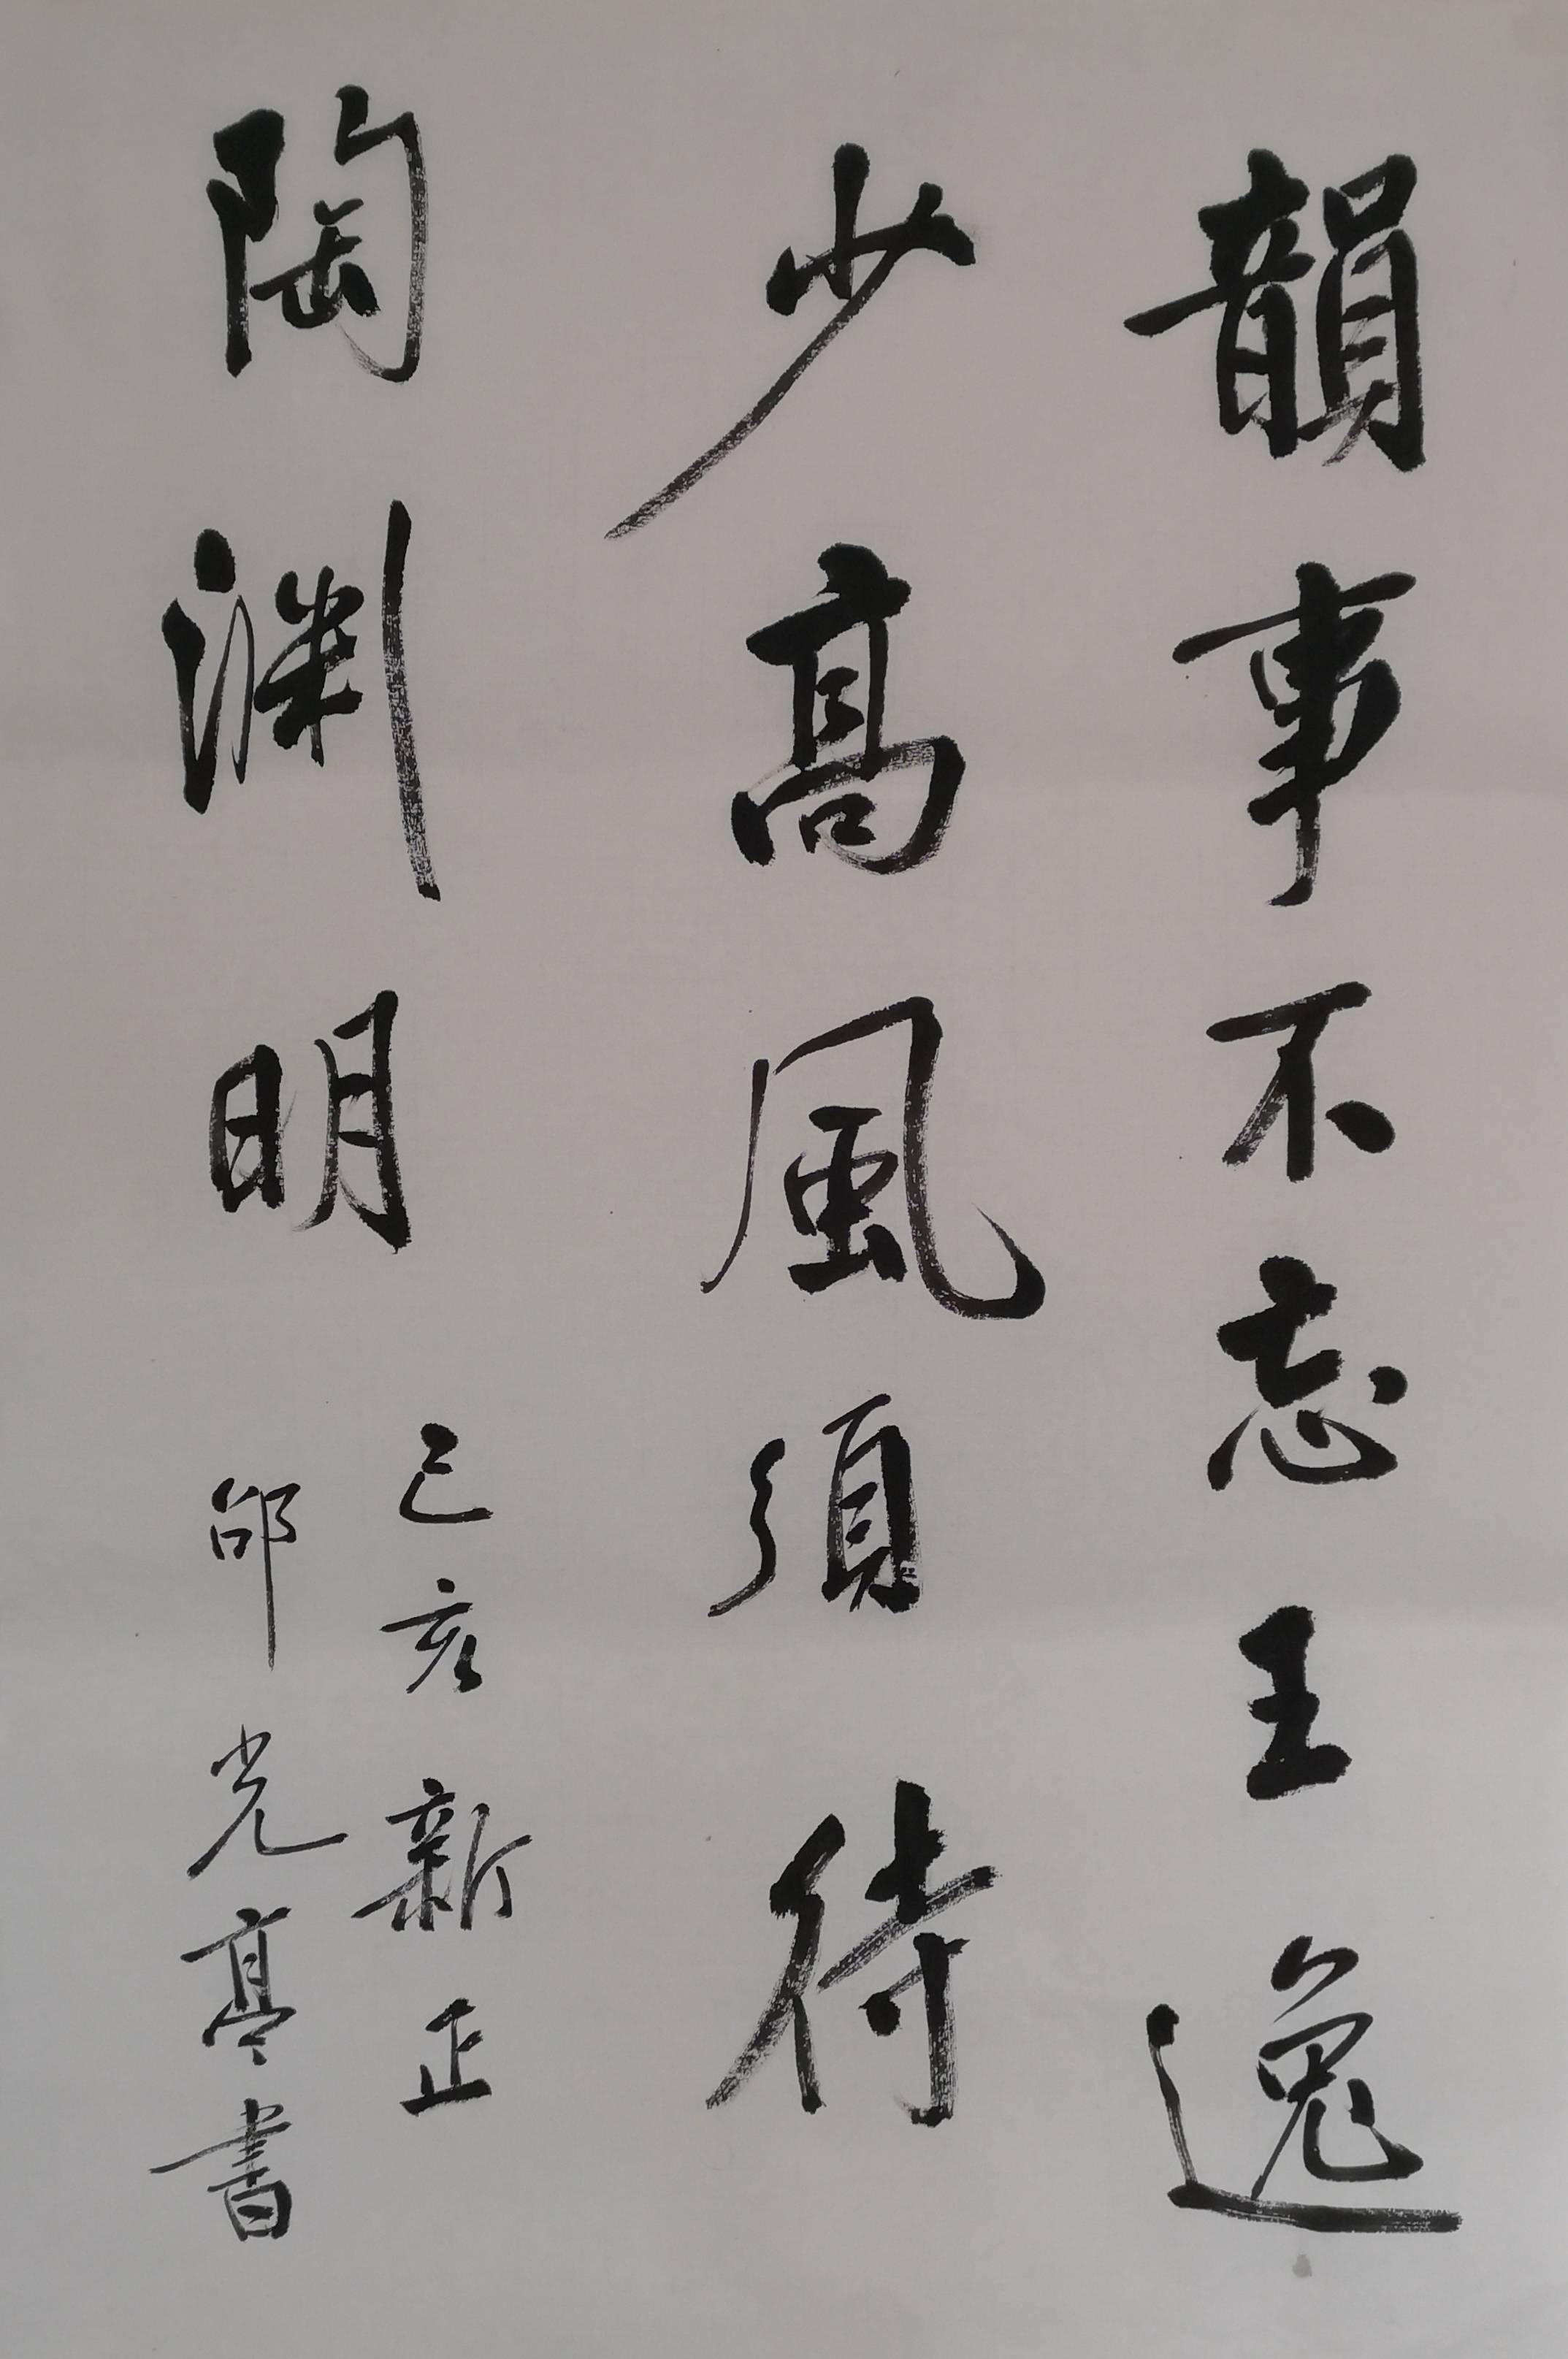 韻事不忘王逸
少高風須待
陶渊明
己亥新正
邵光亭書